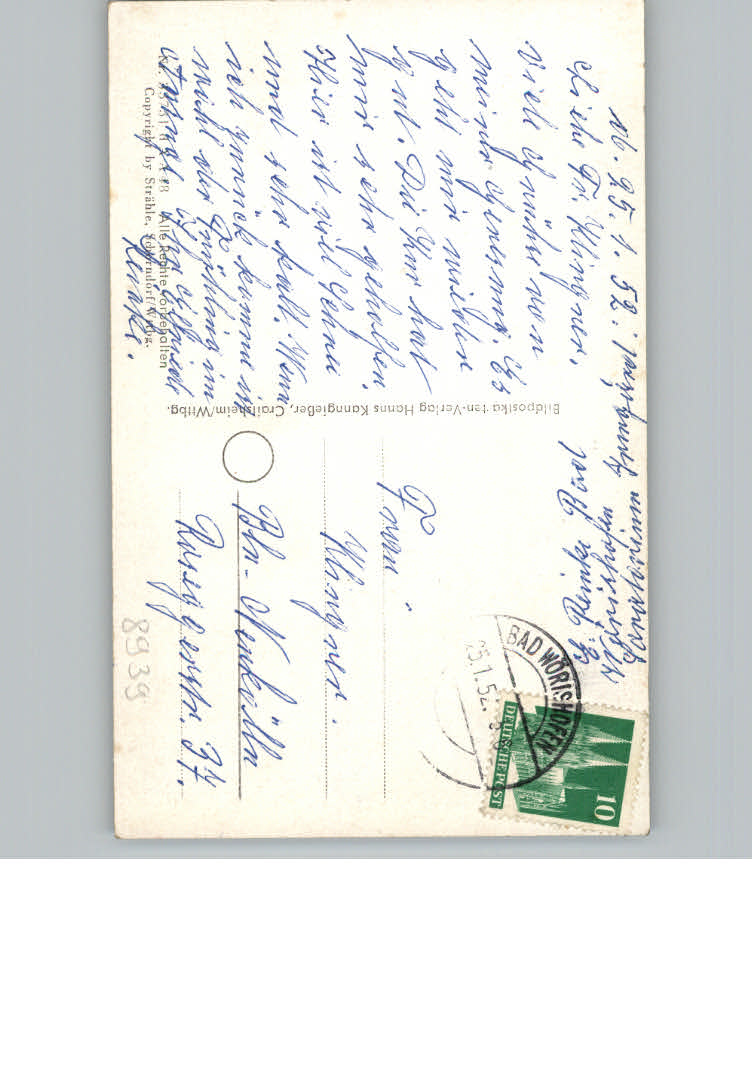 W. 25. 1. 52.
Liebe Fr. Klingner.
viele Grüße von
meiner Genesung. Es
geht mir wieder
gut. Die Kur hat
mir sehr geholfen.
Hier ist viel Schnee
und sehr kalt. Wenn
ich zurück komme ist
wohl der Frühling im
Copyright by Strähle, Schorndorf/Wttbg.
Alle Rechte vorbehalten
Bildpostkarten-Verlag Hanns Kanngießer, Crailsheim/Wttbg.
E. Reinke Bad
Wörishofen
Sanatorium
BAD WÖRISHOFEN
25.1.52.
DEUTSCHE POST
10
Frau
Klingner.
Bln-Neukölln
Kanzowstr. 37.
8939